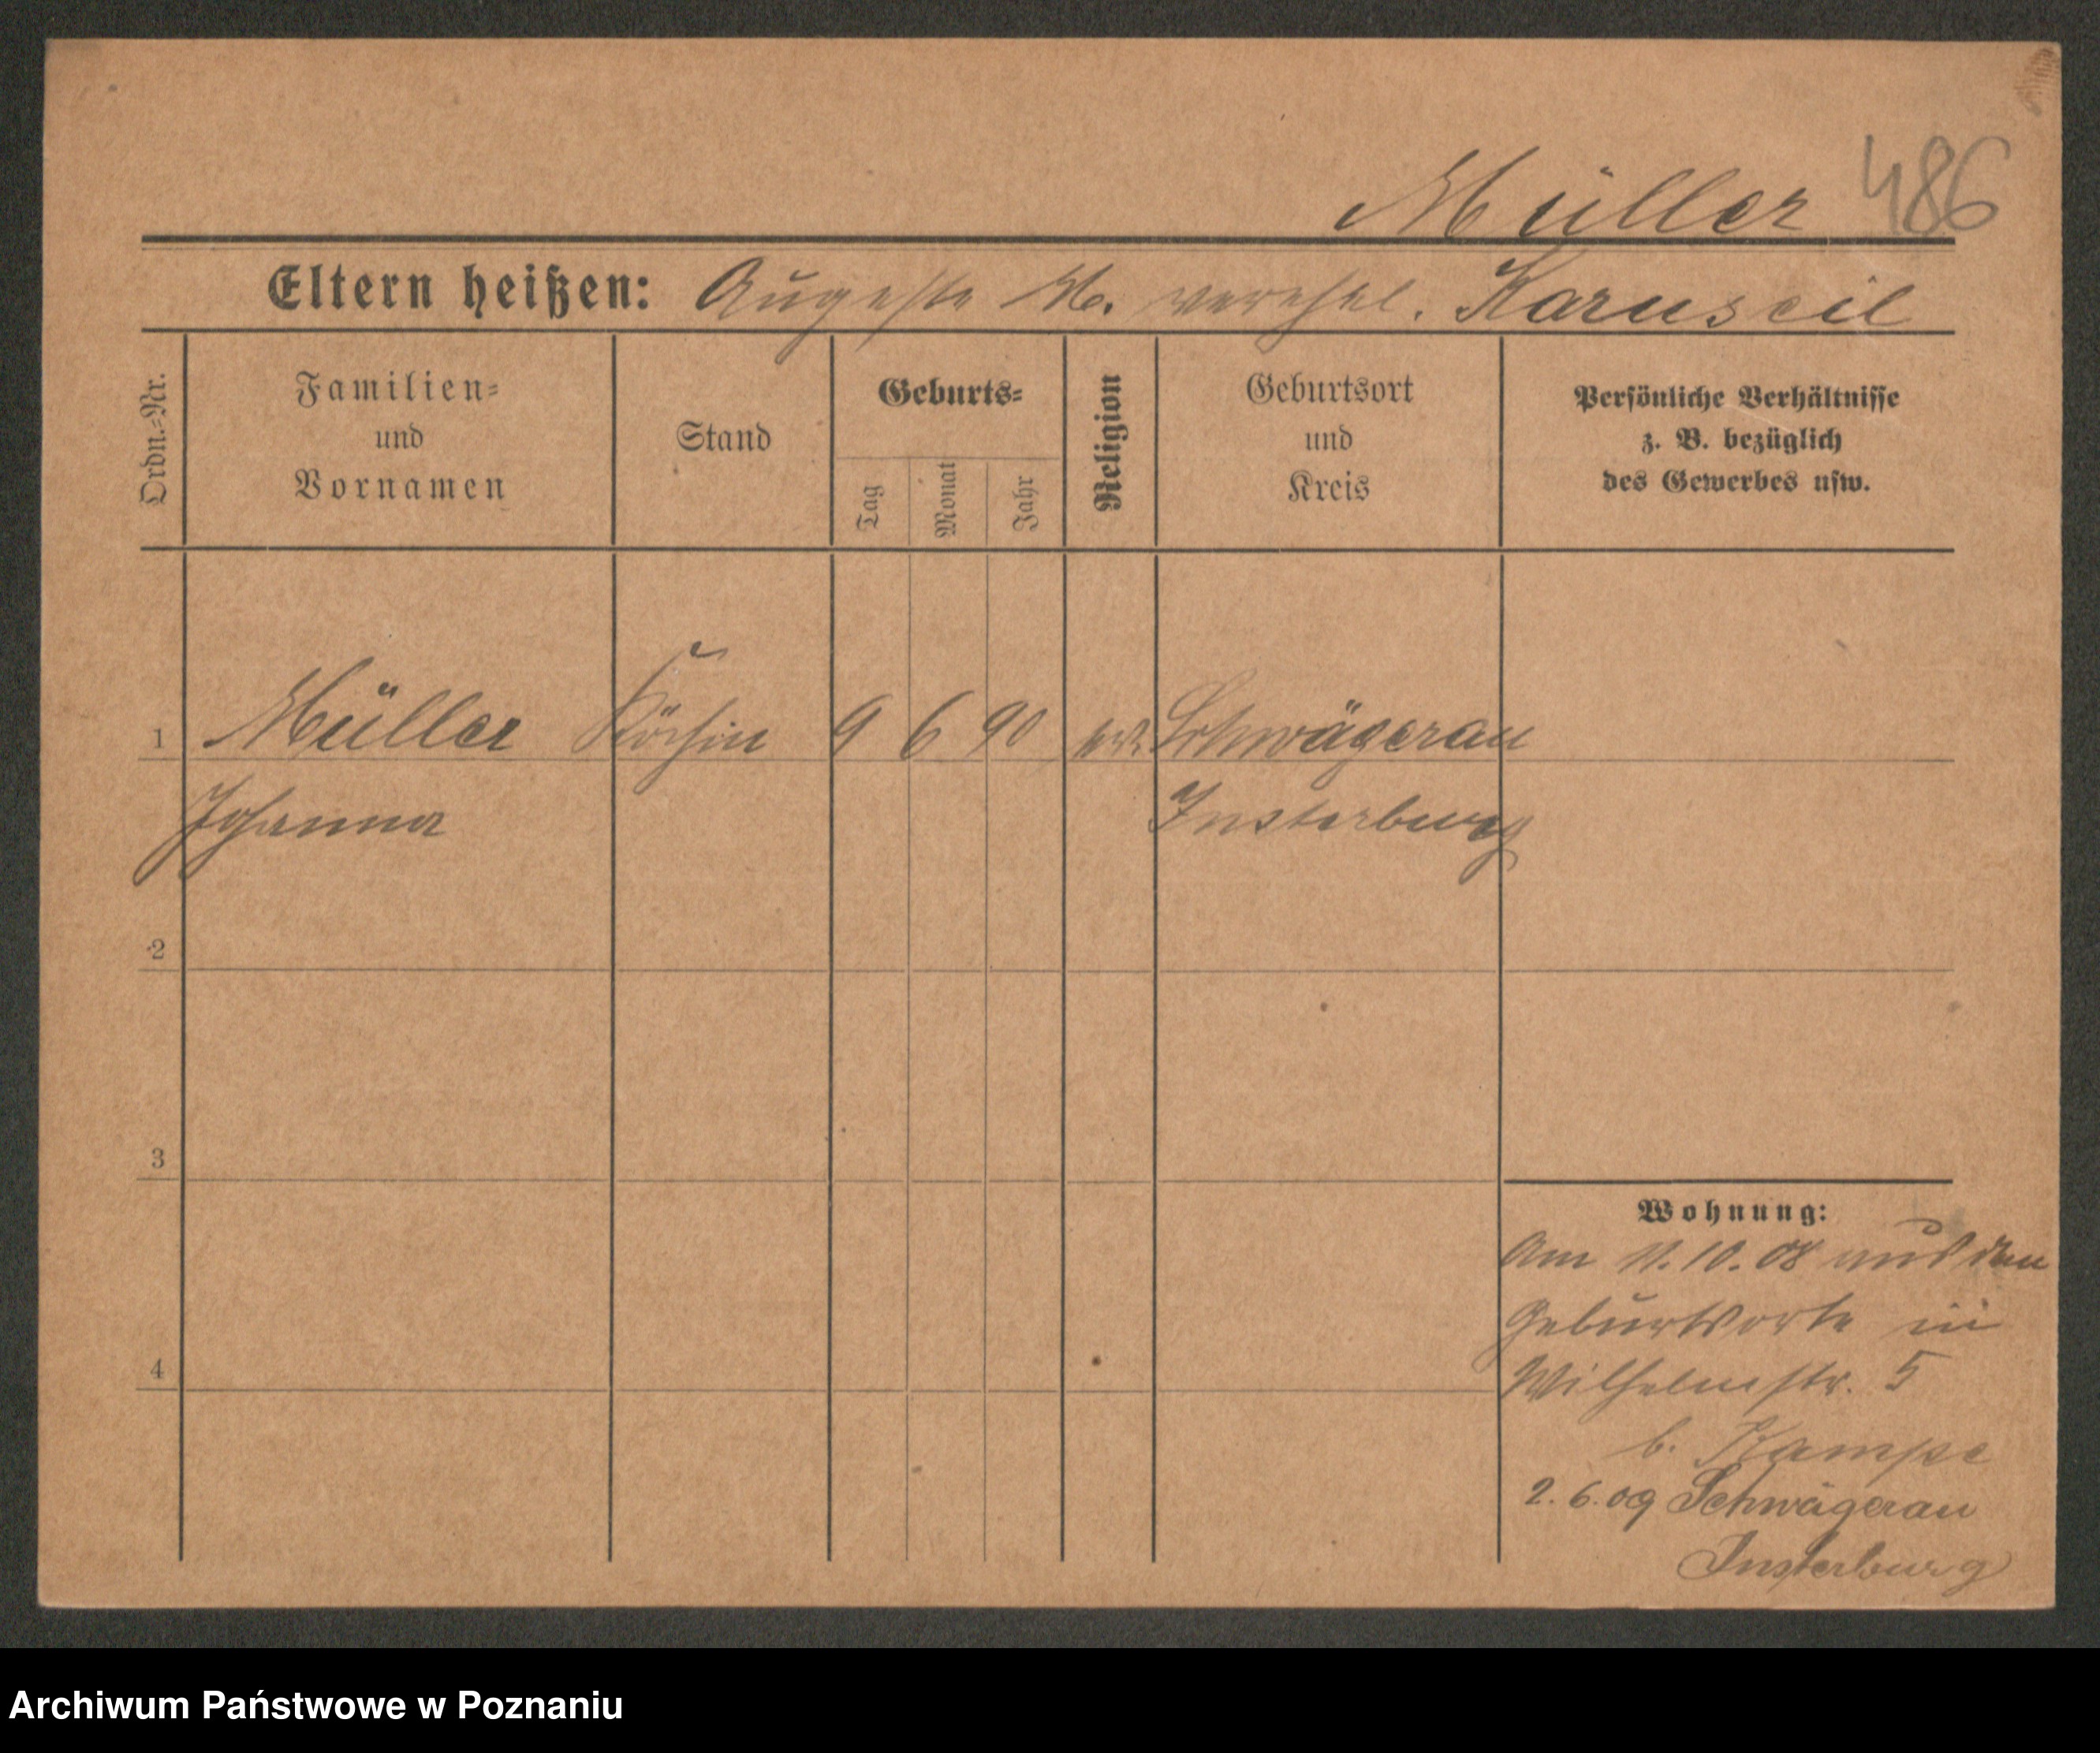 Müller 486
Eltern heißen: Auguste M. verehel. Karuseil
Ordn.-Nr.
Familien-
und
Vornamen
Stand
Geburts-
Tag
Monat
Jahr
Religion
Geburtsort
und
Kreis
Persönliche Verhältnisse
z. B. bezüglich
des Gewerbes usw.
1 Müller Köchin 9 6 90 ev. Schwägerau
Johanna Insterburg
2
3
4
Wohnung:
Am 11.10.08 aus dem
Geburtsorte in
Wilhelmstr. 5
b. Kampe
2.6.09 Schwägerau
Insterburg
Archiwum Państwowe w Poznaniu